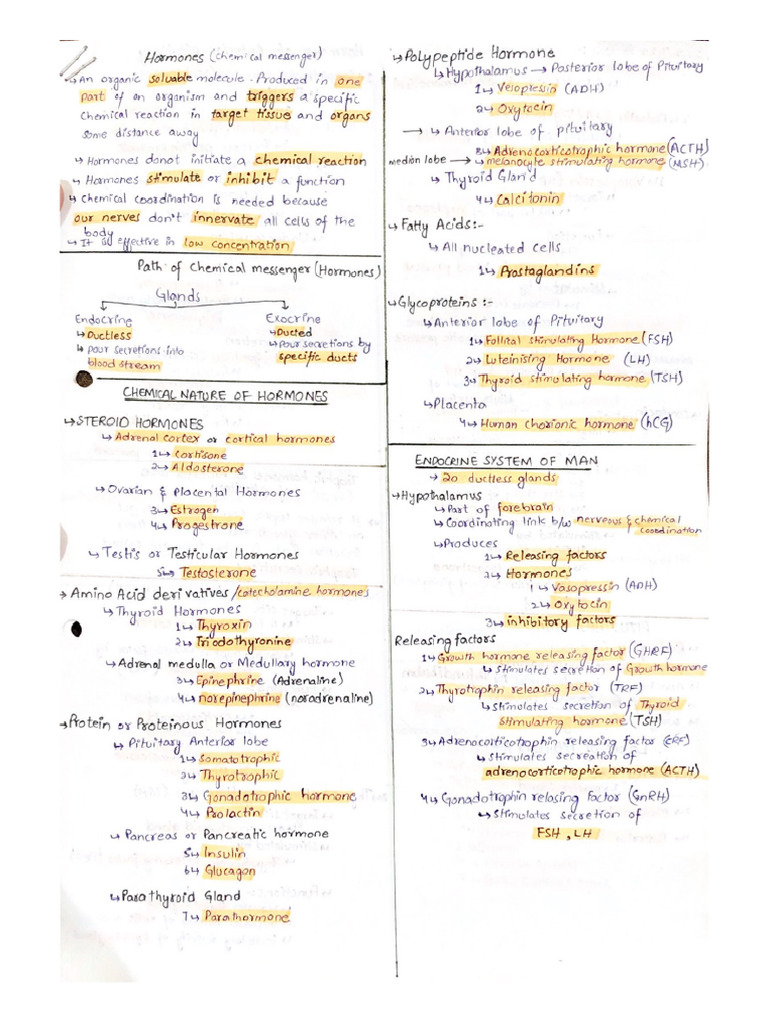 Hormones (chemical messenger)
↳ An organic soluable molecule. Produced in one
part of an organism and triggers a specific
chemical reaction in target tissue and organs
some distance away
↳ Hormones donot initiate a chemical reaction
↳ Hormones stimulate or inhibit a function
↳ Chemical coordination is needed because
our nerves don't innervate all cells of the
body
↳ It is effective in low concentration
Path of chemical messenger (Hormones)
Glands
Endocrine
↳ Ductless
↳ pour secretions into
blood stream
Exocrine
↳ Ducted
↳ pour secretions by
specific ducts
CHEMICAL NATURE OF HORMONES
↳ STEROID HORMONES
↳ Adrenal cortex or cortical hormones
1↳ Cortisone
2↳ Aldosterone
↳ Ovarian & Placental Hormones
3↳ Estrogen
4↳ Progestrone
↳ Testis or Testicular Hormones
5↳ Testosterone
→ Amino Acid derivatives / catecholamine hormones
↳ Thyroid Hormones
1↳ Thyroxin
2↳ Triodothyronine
↳ Adrenal medulla or Medullary hormone
3↳ Epinephrine (Adrenaline)
4↳ norepinephrine (noradrenaline)
→ Protein or Proteinous Hormones
↳ Pituitary Anterior lobe
1↳ Somatotrophic
2↳ Thyrotrophic
3↳ Gonadotrophic hormone
4↳ Prolactin
↳ Pancreas or Pancreatic hormone
5↳ Insulin
6↳ Glucagon
↳ Parathyroid Gland
7↳ Parathormone
↳ Polypeptide Hormone
↳ Hypothalamus → Posterior lobe of Pituitary
1↳ Vesopressin (ADH)
2↳ Oxytocin
→ ↳ Anterior lobe of pituitary
3↳ Adrenocorticotrophic hormone (ACTH)
median lobe → ↳ melanocyte stimulating hormone (MSH).
↳ Thyroid Gland
4↳ Calcitonin
↳ Fatty Acids:-
↳ All nucleated cells
1↳ Prostaglandins
↳ Glycoproteins :-
↳ Anterior lobe of Pituitary
1↳ Follital stimulating Hormone (FSH)
2↳ Luteinising Hormone (LH)
3↳ Thyroid stimulating hormone (TSH)
↳ Placenta
4↳ Human chorionic hormone (hCG)
ENDOCRINE SYSTEM OF MAN
↳ 20 ductless glands
↳ Hypothalamus
↳ Part of forebrain
↳ Coordinating link b/w nervous & chemical
coordination
↳ Produces
1↳ Releasing factors
2↳ Hormones
1↳ Vasopressin (ADH)
2↳ Oxytocin
3↳ inhibitory factors
Releasing factors
1↳ Growth hormone releasing factor (GHRF)
↳ Stimulates secretion of Growth hormone
2↳ Thyrotrophin releasing factor (TRF)
↳ Stimulates secretion of Thyroid
stimulating hormone (TSH)
3↳ Adrenocorticotrophin releasing factor (CRF)
↳ Stimulates secreation of
adrenocorticotrophic hormone (ACTH)
4↳ Gonadotrophin relasing Factor (GnRH)
↳ Stimulates secretion of
FSH, LH